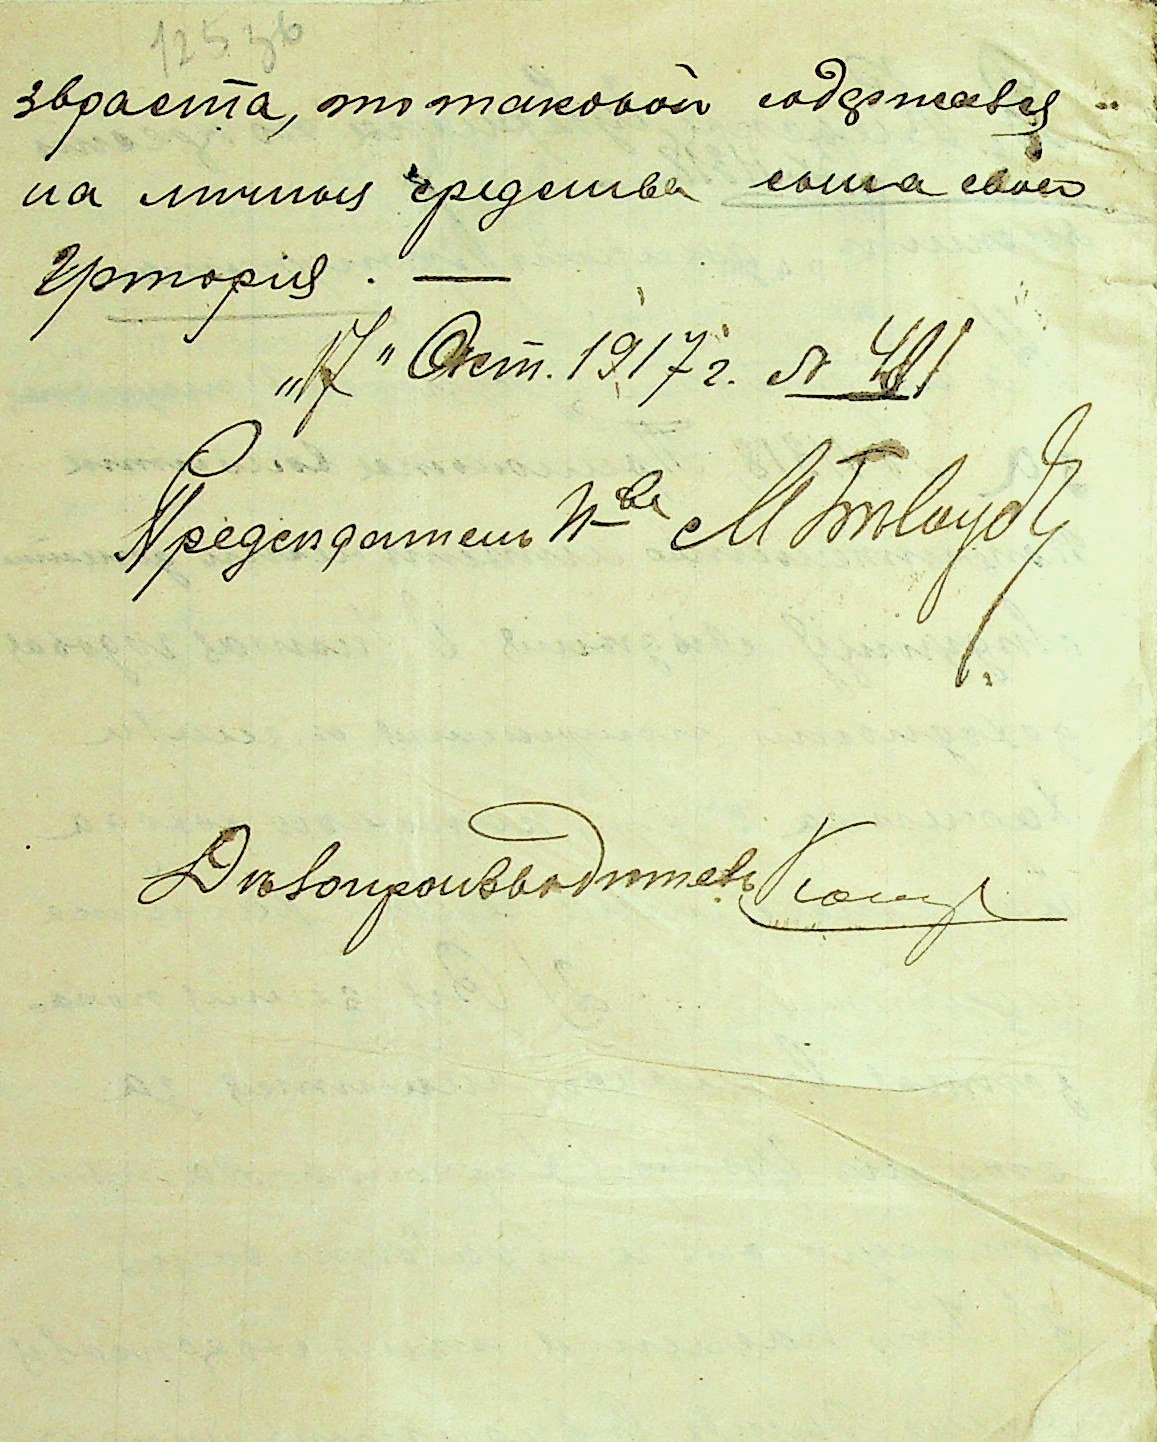 125 об
зраста, то таковой содержался
на личныя средства сына своего
Григорія. —
„17” Окт. 1917 г. № 491
Предсѣдатель П-ва
Дѣлопроизводитель